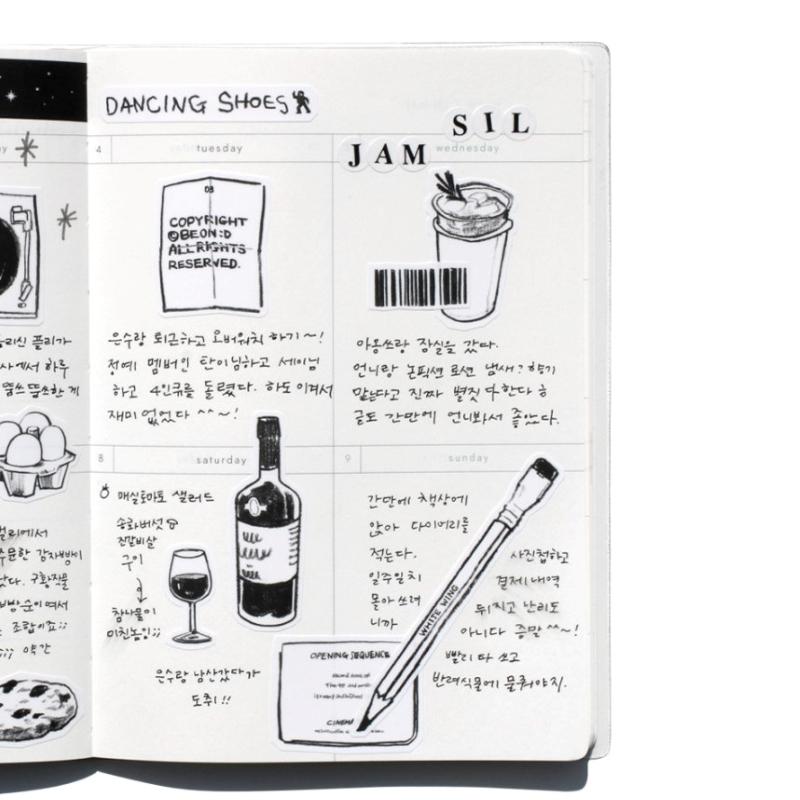 DANCING SHOES
4 tuesday
03
COPYRIGHT
©BEON:D
ALL RIGHTS
RESERVED.
은수랑 퇴근하고 오버워치 하기 ~!
정예 멤버인 탄이님하고 세이님
하고 4인큐를 돌렸다. 하도 이겨서
재미 없었다 ^^~!
JAM SIL
wednesday
아용쓰랑 잠실을 갔다.
언니랑 논픽션 로션 냄새? 향기
맡는다고 진짜 별짓 다한다 ㅎ
글도 간만에 언니봐서 좋았다.
플리가
사에서 하루
뜝쓰뜝쓰한 게
8 saturday
매실토마토 샐러드
송화버섯
진갈비살
구이
참나물이
미친놈임;;
은수랑 남산갔다가
도주!!
OPENING SEQUENCE
CINEMA
9 sunday
간만에 책상에
앉아 다이어리를
적는다.
일주일치
몰아 쓰려
니까
사진첩하고
결제내역
뒤지고 난리도
아니다 증말 ^^~!
빨리 다 쓰고
반려식물에 물줘야지.
WHITE WING
캘리에서
주문한 감자빵이
았다. 구황작물
빵순이여서
조합이죠;;
약간